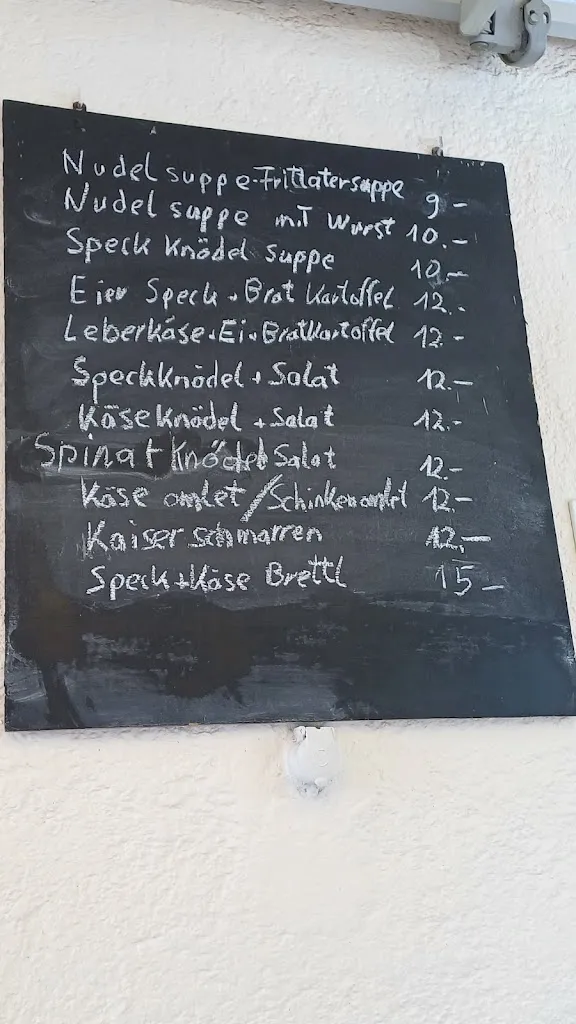 Nudel suppe-Frittatersuppe 9 -
Nudel suppe mit Wurst 10.-
Speck Knödel suppe 10.-
Eier Speck + Brat Kartoffel 12.-
Leberkäse+Ei+Bratkartoffel 12.-
Speckknödel + Salat 12.-
Käseknödel + Salat 12.-
Spinat Knödel Salat 12.-
Käse omlet/Schinkenomlet 12-
Kaiser schmarren 12.-
Speck+Käse Brettl 15-